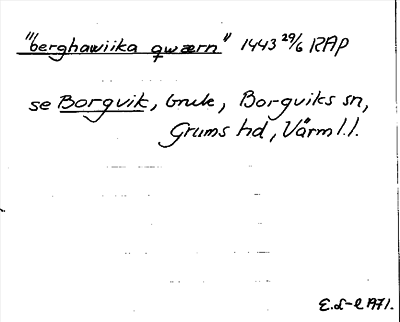 "berghawiika qwærn" 1443 29/6 RAP
se Borgvik, bruk, Borgviks sn,
Grums hd, Värml.l.
E.L-l 1971.